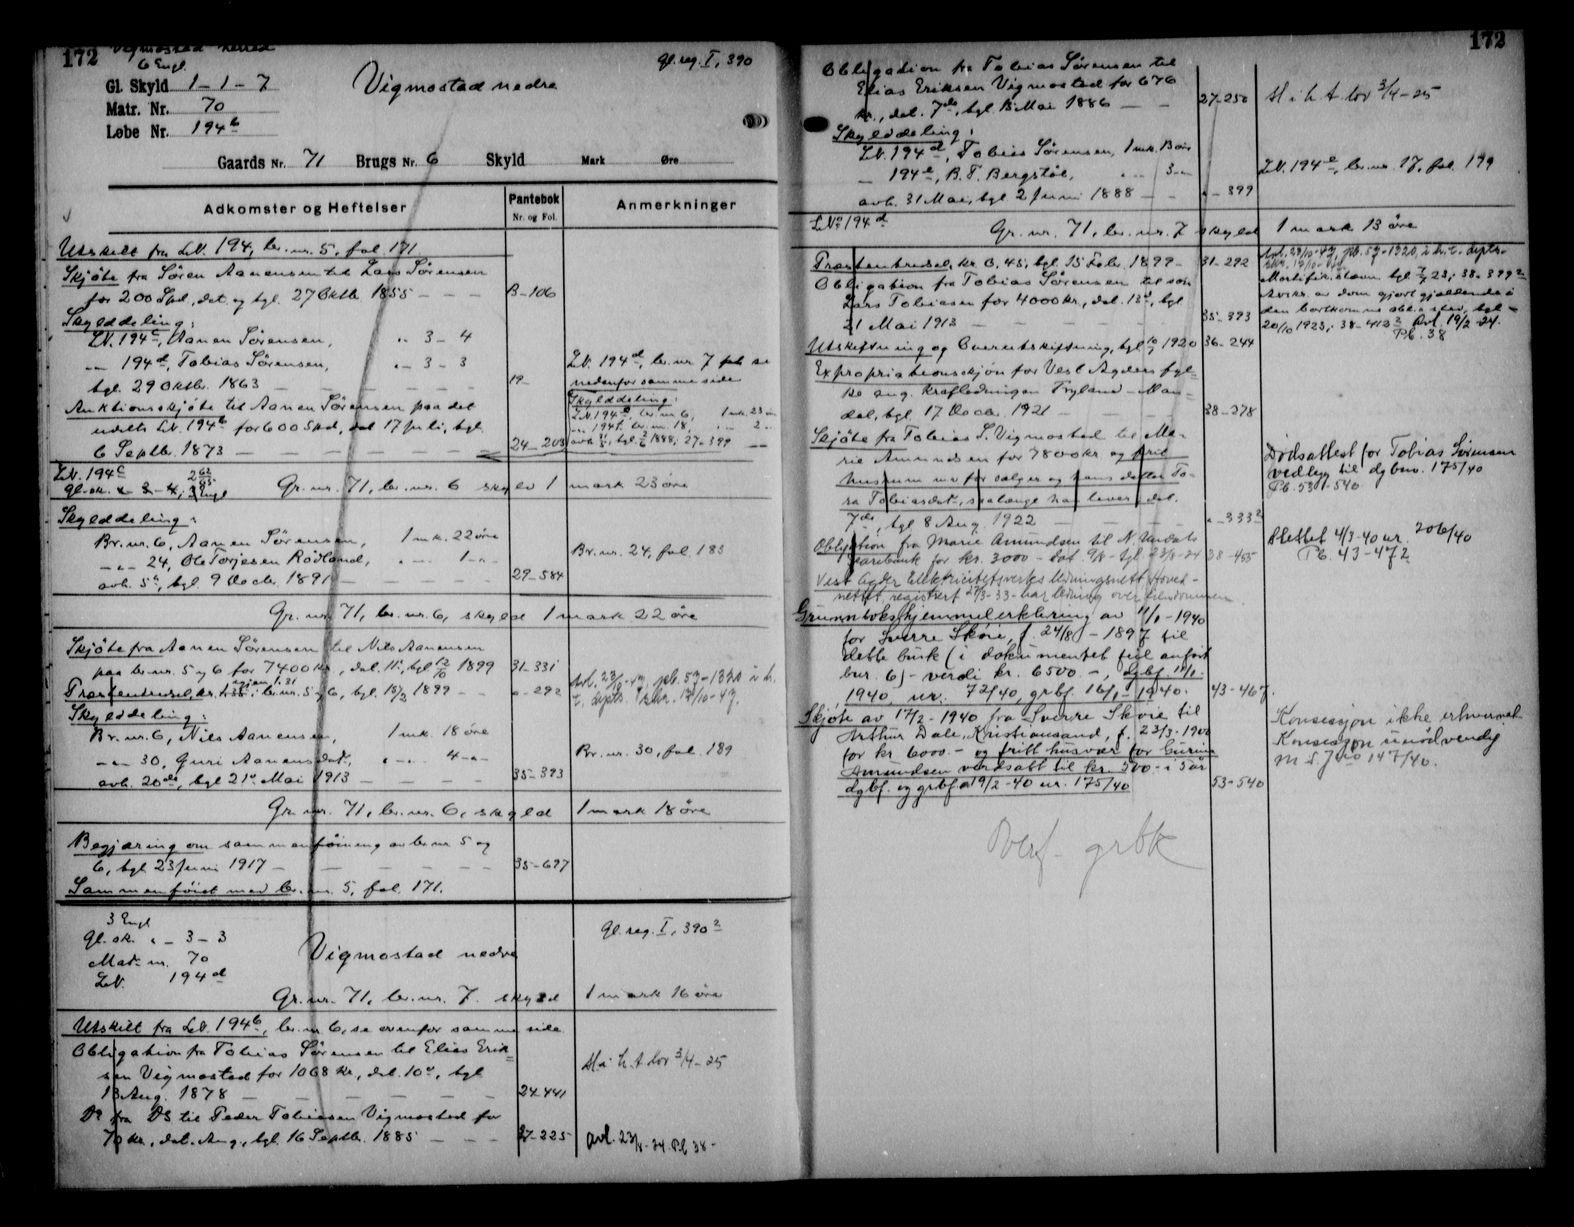 172
Vigmostad nedre
6 Engl.
Gl. Skyld 1-1-7
Matr. Nr. 70
Løbe Nr. 194b
Vigmostad nedre
gl. reg. I, 390
Gaards Nr. 71 Brugs Nr. 6 Skyld Mark Øre
Adkomster og Heftelser
Pantebok Nr. og Fol.
Anmerkninger
Utskilt fra L.N. 194, br. nr. 5, fol 171
Skjøte fra Søren Aanensen til Lars Sørensen
for 200 Spd, dat. og tgl. 27 Oktb. 1855 - - - B-106
Skylddeling:
L.N. 194c, Aanen Sørensen, " 3-4
"-" 194d, Tobias Sørensen, "-3-3
tgl. 29 Oktb. 1863 - - - - 19-
L.N. 194d, br. nr 7 fol se
nedenfor samme side
Auktionsskjøte til Aanen Sørensen paa det
udelte L.N. 194b for 600 Spd, dat 17 Juli, tgl.
6 Septb. 1873 - - - - 24-203
Skylddeling:
L.N. 194b, br. nr. 6, 1 mk. 23 "
"-" 194f. br. nr. 18, "- 2 "
1888, 27-399
L.N. 194c
Gr. nr. 71, br. nr. 6 skyld 1 mark 23 øre
Skylddeling:
Br. nr. 6, Aanen Sørensen, 1 mk. 22 øre
"-" 24, Ole Torjesen Rødland, "-" 1-"
avh. 5te, tgl. 9 Decbr. 1891 - - - - 29-584
Br. nr. 24, fol. 183
Gr. nr. 71, br. nr. 6, skyld 1 mark 22 øre
Skjøte fra Aanen Sørensen til Nils Aanensen
paa br. nr. 5 og 6 for 7400 kr, dat. 11te, tgl 12/10 1899 31-331
br. nr. 5 og 6, tgl. 15/2 1899 - - "-292
Skylddeling:
Br. nr. 6, Nils Aanensen, 1 mk. 18 øre
"-" 30, Guri Aanensdat., "-" 4-"
avh. 20de, tgl 21de Mai 1913 - - - - 35-393
Br. nr. 30, fol. 189
Gr. nr. 71, br. nr. 6, skyld 1 mark 18 øre
Begjæring om sammenføining av br. nr 5 og
6, tgl 23 Juni 1917 - - - - 35-697
Sammenføiet med br. nr. 5, fol. 171.
3 Engl
Gl. sk. "-3-3
Matr nr. 70
L.N. 194d
Vigmostad nedre
Gl. reg. I, 390²
Gr. nr. 71, br. nr. 7. skyld 1 mark 16 øre
Utskilt fra L.N. 194b, br. nr 6, se ovenfor samme side
Obligation fra Tobias Sørensen til Elias Erik-
sen Vigmostad for 1068 kr, dat. 10de, tgl
13 Aug. 1878 - - - - 24-441
Sl. i h. t. lov 3/4-25
Do fra Ds til Peder Tobiassen Vigmostad for
70 kr, dat. Aug, tgl. 16 Septb. 1885 - - - 27-225
172
Obligation fra Tobias Sørensen til
Elias Eriksen Vigmostad for 676
kr., dat. 7de, tgl 13 Mai 1886 - - 27-250
Sl. i h. t. lov 3/4-25
Skylddeling:
L.N. 194d, Tobias Sørensen, 1 mk. 13 øre
- 194e, B. T. Bergstøl, "- 3-"
avh. 31 Mai, tgl 2 Juni 1888 - - "-399
L.N. 194e, br. nr. 17, fol. 179
L.No 194d
Gr. nr. 71, br. nr. 7 skyld 1 mark 13 øre
Præstenbredsel, kr. 0,45, tgl. 15 Febr. 1899 - 31-292
Obligation fra Tobias Sørensen til søn
Lars Tobiassen for 4000 kr, dat. 13de, tgl
21 Mai 1913 - - - - 35-393
Utskiftning og Overutskiftning, tgl 1920 36-244
Expropriationsskjøn for Vest Agders fyl-
ke ang. kraftledningen Tryland - Man-
dal, tgl. 17 Decbr. 1921 - - - 38-278
Skjøte fra Tobias S. Vigmostad til Ma-
rie Amundsen for 7800 kr og frit
husrum m.v. for sælger og hans datter To-
ra Tobiasdat., saalænge han lever, dat.
7de, tgl 8 Aug. 1922 - - - "-333²
Dødsattest for Tobias Sørensen
vedlegg til dgbnr. 175/40
Pb. 53-540
Obligation fra Marie Amundsen til N. Undals
sparebank for kr. 3000 - 38-455
Slettet 4/3-40 nr. 206/40
Pb. 43-472
Vest Agder Elektricitetsverks ledningsnett Hoved-
nettet, registrert 27/3-33 - har ledning over eiendommen
Grunnbokshjemmelerklering av 11/1-1940
for Sverre Skoie, f. 24/8-1897 til
dette bruk (i dokumentet feil anført
br nr. 6) - verdi kr. 6500.-, dgbf. 11/1
1940 nr: 72/40, grbf. 16/1-1940. 43-467
Skjøte av 17/2-1940 fra Sverre Skoie til
Arthur Dale, Kristiansand, f. 23/3-1900
for kr 6000.- og fritt husvær for Gurine
Amundsen verdsatt til kr. 500.- i 5 år
dgbf. og grbf. 19/2-40 nr. 175/40 53-540
Konsesjon ikke erhvervet
Konsesjon unødvendig
Overf. grbk